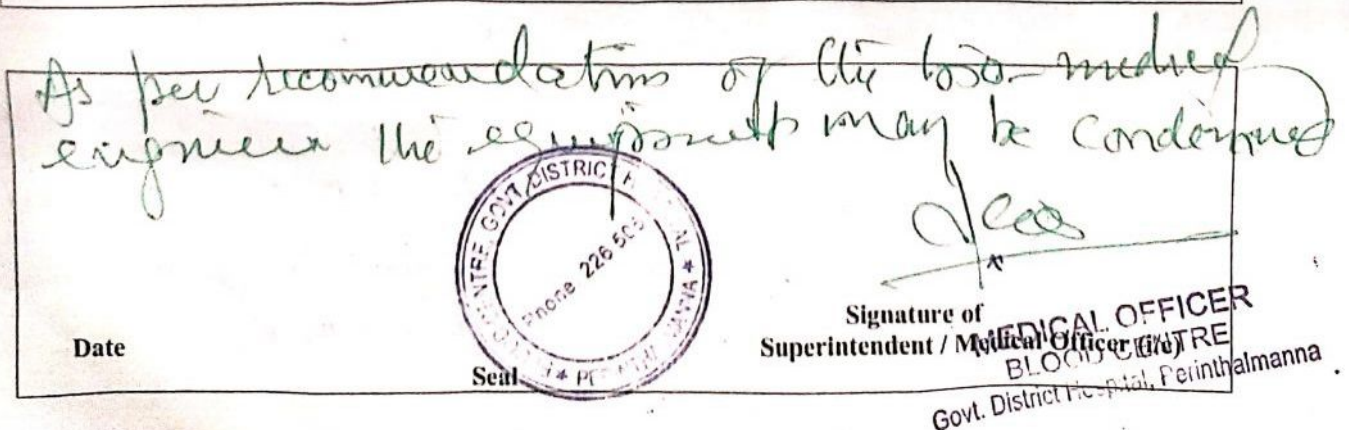 As per recommendations of the bio-medical
engineer the equipment may be condemned
BLOOD CENTRE, GOVT. DISTRICT HOSPITAL * PERINTHALMANNA *
Phone 226 505
Date
Seal
Signature of
Superintendent / Medical Officer (i/c)
MEDICAL OFFICER
BLOOD CENTRE
Govt. District Hospital, Perinthalmanna